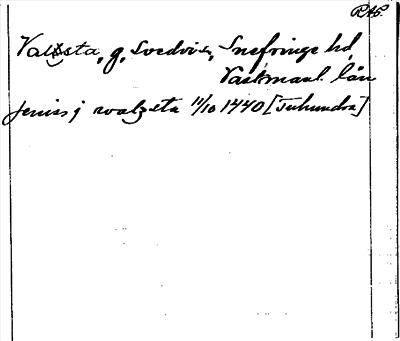 RAP.
Valsta, g, Svedvi sn, Snefringe hd,
Västmanl. län
jeniss j walzsta 11/10 1440 [Tuhundra]